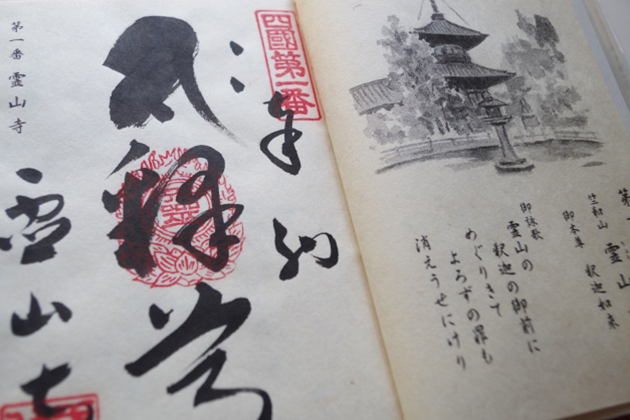 霊山
竺和山
御本尊 釈迦如来
御詠歌
霊山の 釈迦の御前に
めぐりきて
よろずの罪も
消えうせにけり
四國第一番
奉納
釋
霊山寺
第一番 霊山寺